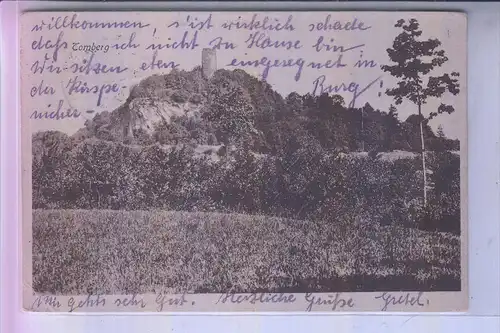 willkommen, s'ist wirklich schade
Tomberg
daß ich nicht zu Hause bin
Wir sitzen eingeregnet in
der Burg!
nicht
Mir gehts sehr gut. Herzliche Grüße Gretel.